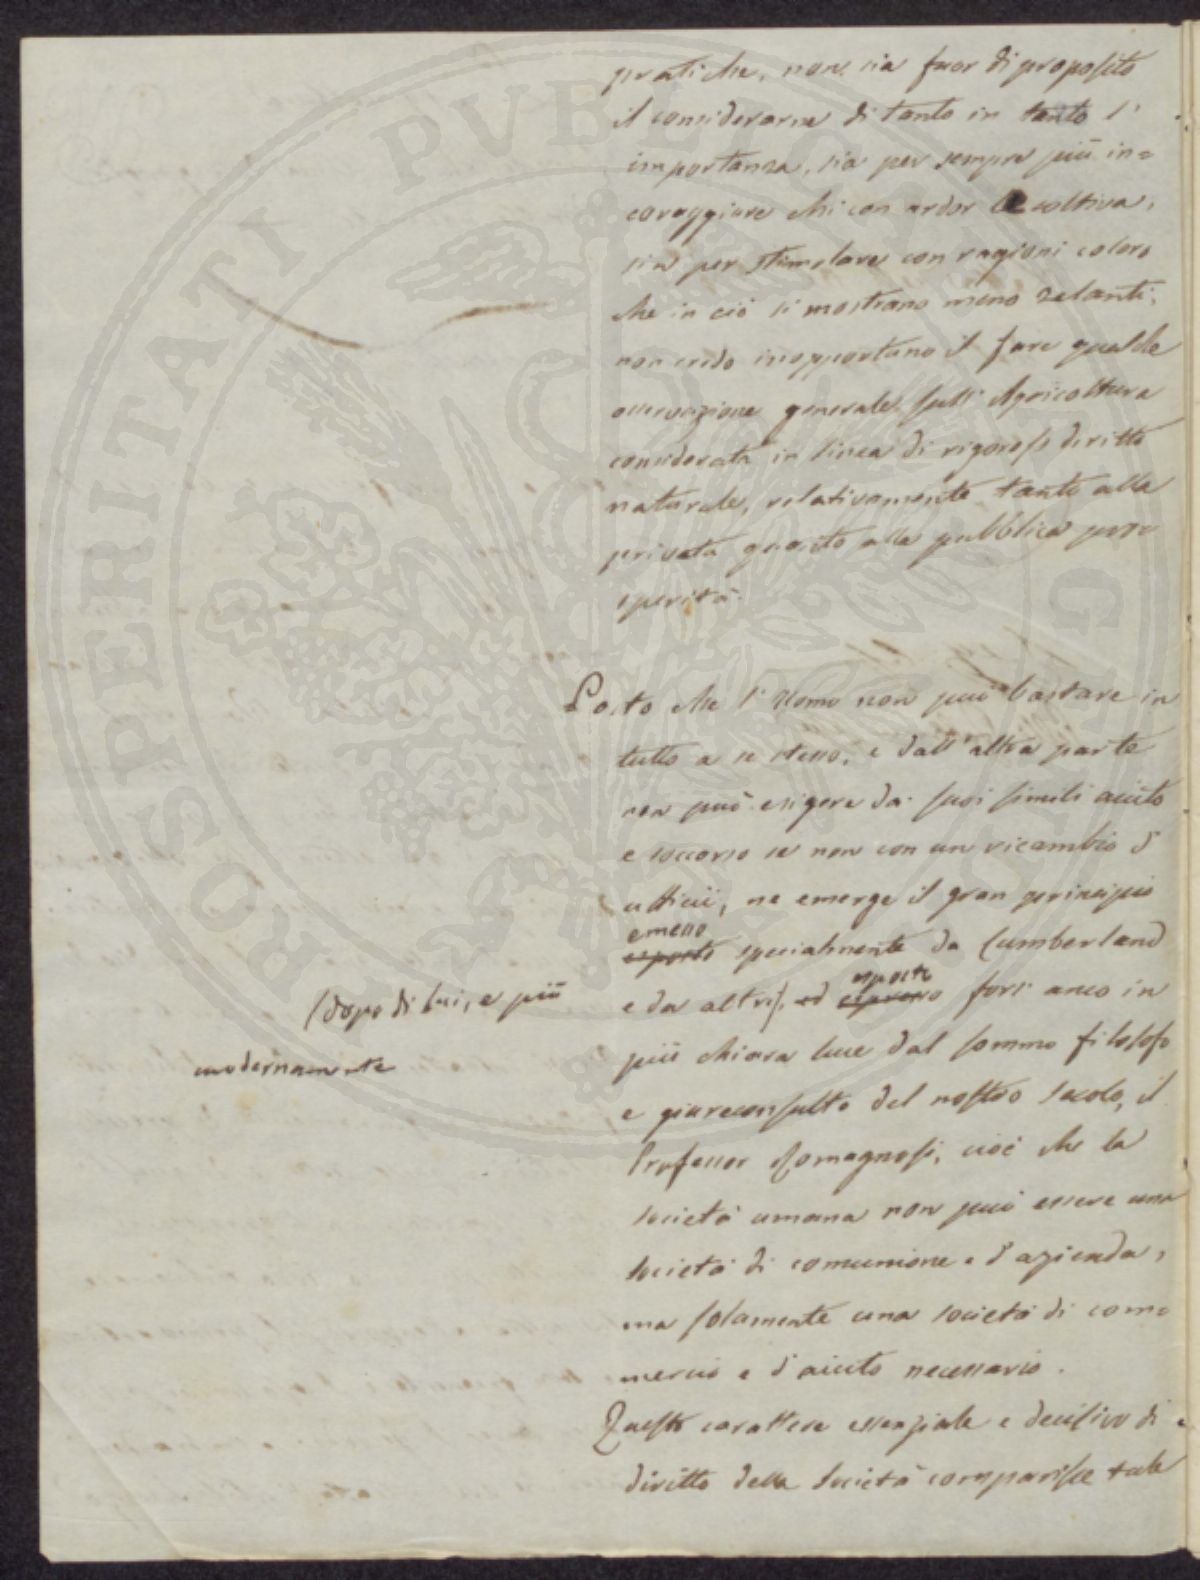 pratiche, non sia fuor di proposito
il considerarne di tanto in tanto l'
importanza, sia per sempre più in=
coraggiare chi con ardor le coltiva,
sia per stimolare con ragioni coloro
che in ciò si mostrano meno zelanti;
non credo inopportuno il fare qualche
osservazione generale sull' Agricoltura
considerata in linea di rigoroso diritto
naturale, relativamente tanto alla
privata quanto alla pubblica pro=
sperità.
Posto che l' Uomo non può bastare in
tutto a se stesso, e dall' altra parte
non può esigere da' suoi simili aiuto
e soccorso se non con un ricambio d'
ufficii, ne emerge il gran principio
emesso
esposto specialmente da Cumberland
esposto
e da altri, ed espresso fors' anco in
(dopo di lui, e più
modernamente
più chiara luce dal sommo filosofo
e giureconsulto del nostro secolo, il
Professor Romagnosi, cioè che la
società umana non può essere una
società di comunione e d' azienda,
ma solamente una società di com=
mercio e d' aiuto necessario.
Questo carattere essenziale e decisivo di
diritto della Società comparisce tale
PROSPERITATI PVBLICAE